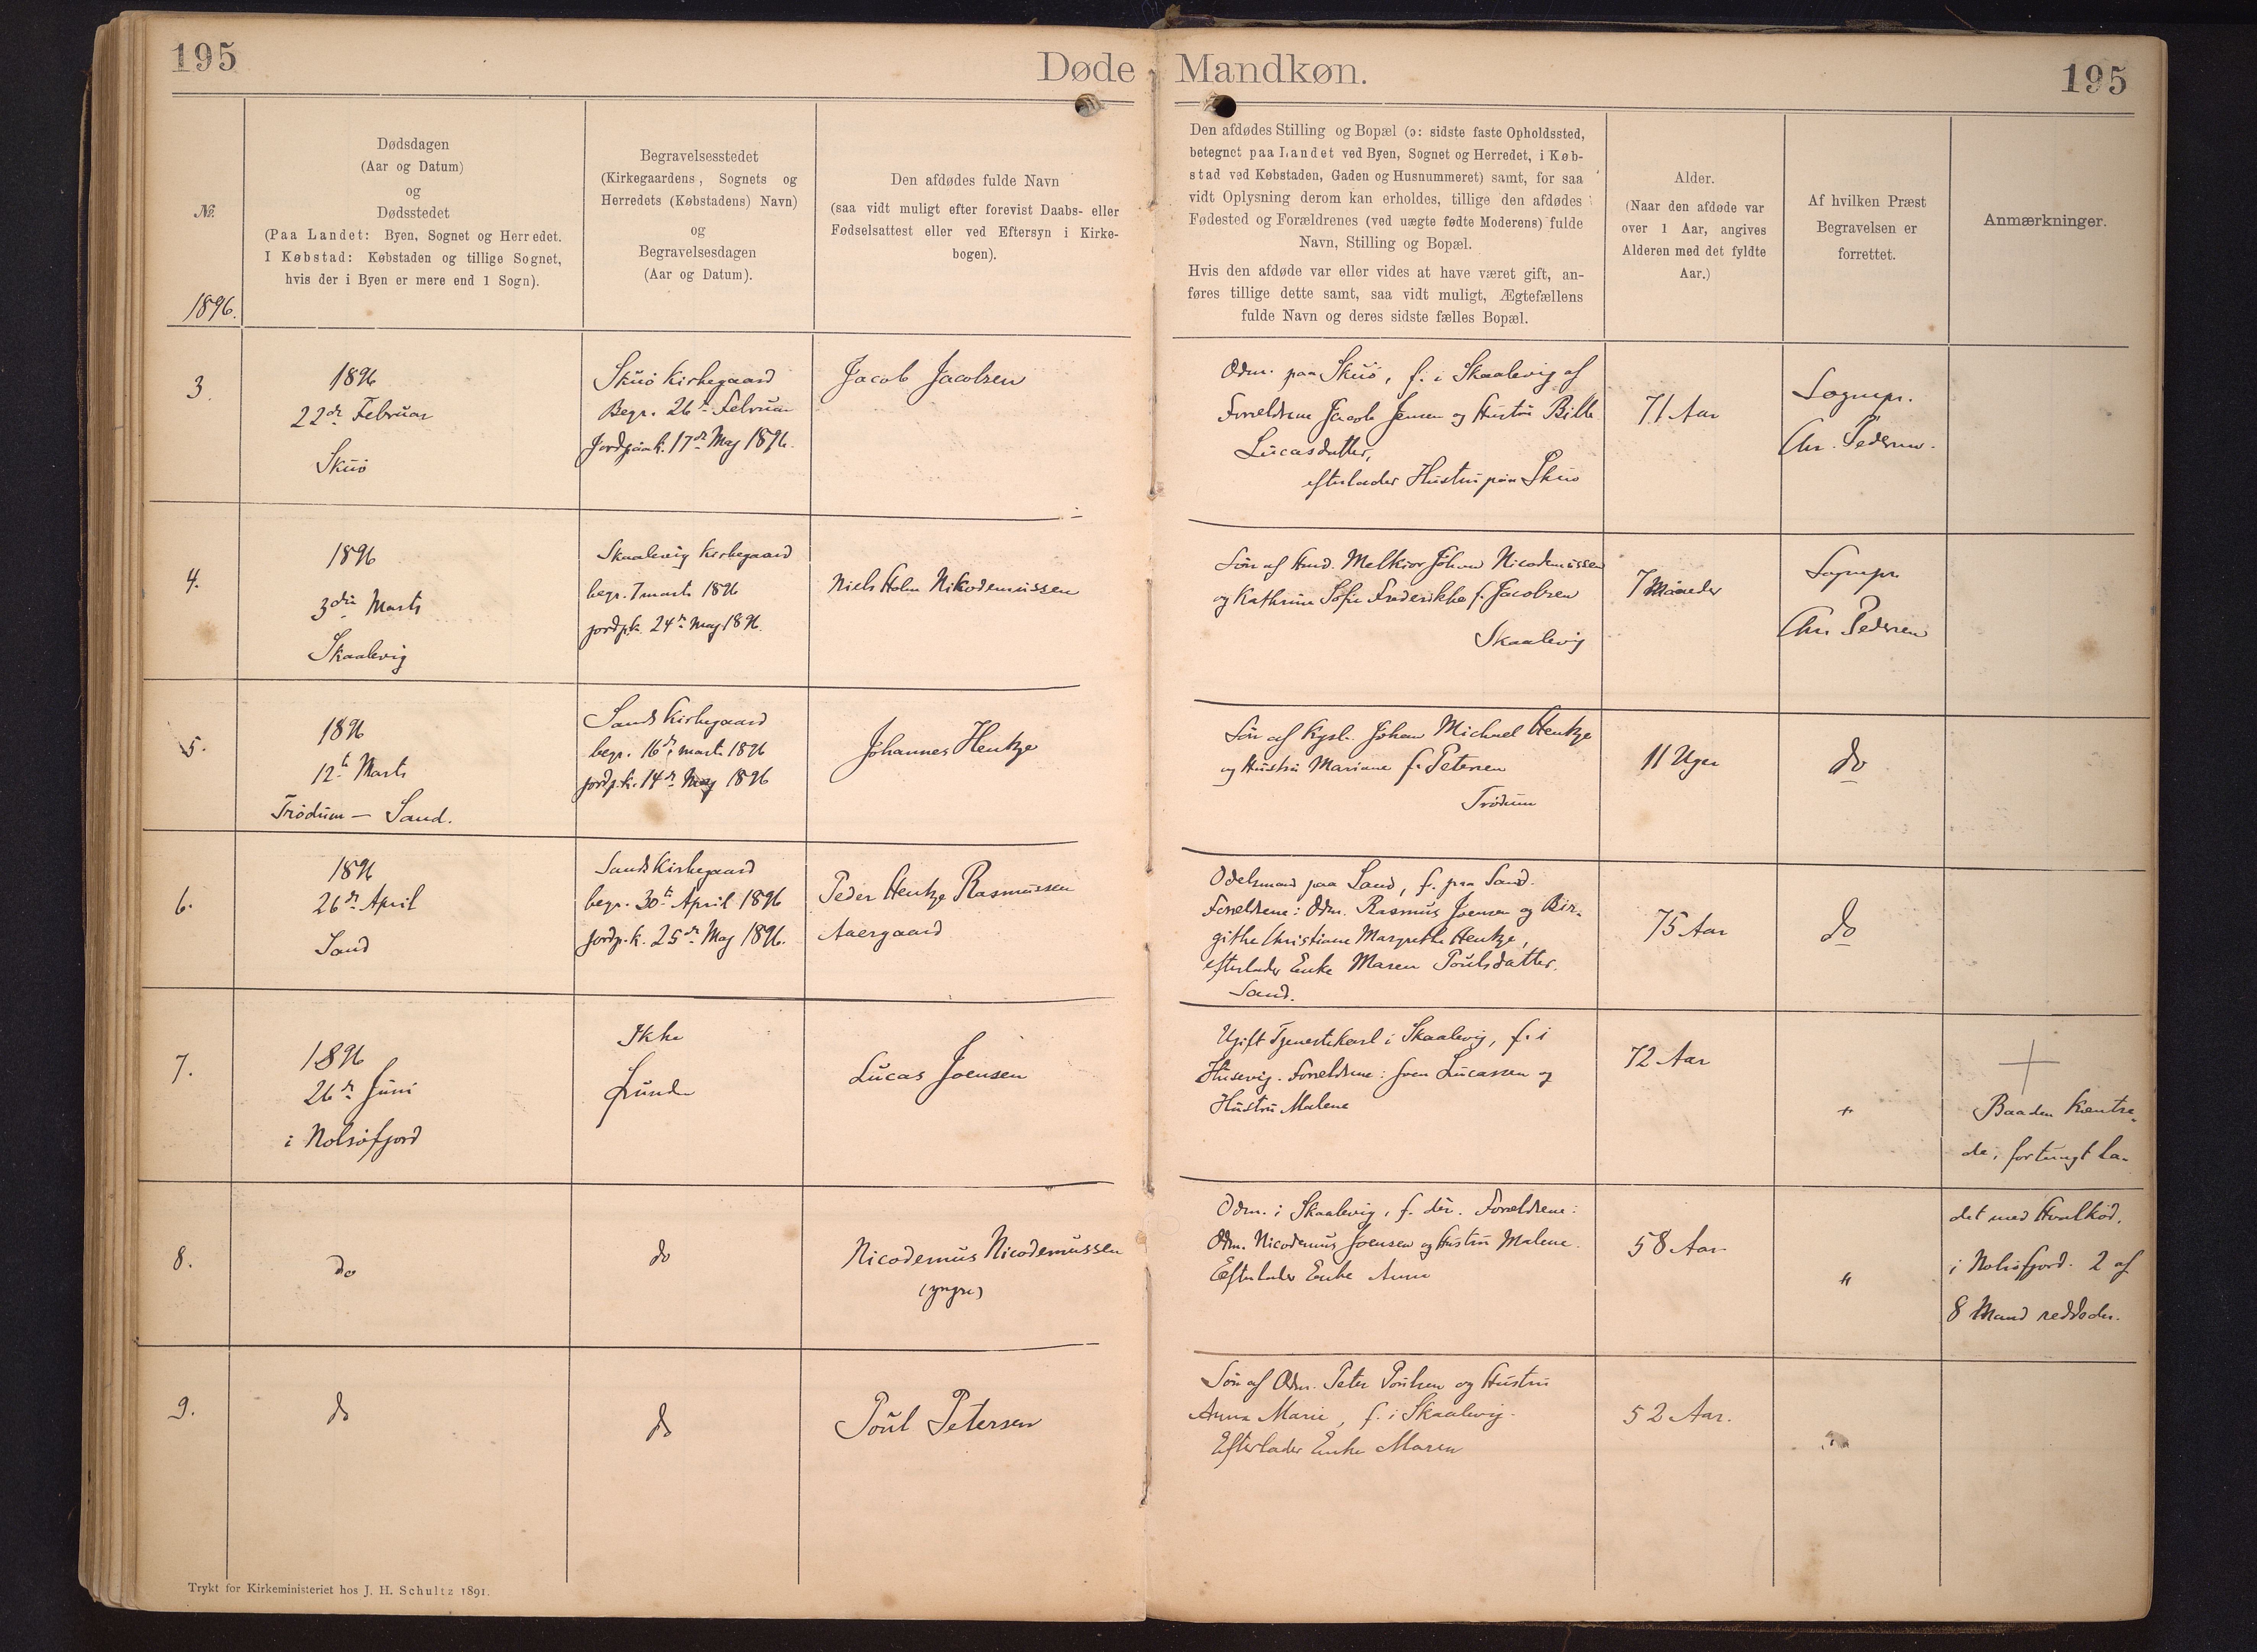 195
Døde
Mandkøn.
195
№
1896.
Dødsdagen
(Aar og Datum)
og
Dødsstedet
(Paa Landet: Byen, Sognet og Herredet.
I Købstad: Købstaden og tillige Sognet,
hvis der i Byen er mere end 1 Sogn).
Begravelsesstedet
(Kirkegaardens, Sognets og
Herredets (Købstadens) Navn)
og
Begravelsesdagen
(Aar og Datum).
Den afdødes fulde Navn
(saa vidt muligt efter forevist Daabs- eller
Fødselsattest eller ved Eftersyn i Kirke-
bogen).
Den afdødes Stilling og Bopæl (ɔ: sidste faste Opholdssted,
betegnet paa Landet ved Byen, Sognet og Herredet, i Køb-
stad ved Købstaden, Gaden og Husnummeret) samt, for saa
vidt Oplysning derom kan erholdes, tillige den afdødes
Fødested og Forældrenes (ved uægte fødte Moderens) fulde
Navn, Stilling og Bopæl.
Hvis den afdøde var eller vides at have været gift, an-
føres tillige dette samt, saa vidt muligt, Ægtefællens
fulde Navn og deres sidste fælles Bopæl.
Alder.
(Naar den afdøde var
over 1 Aar, angives
Alderen med det fyldte
Aar.)
Af hvilken Præst
Begravelsen er
forrettet.
Anmærkninger.
3.
1896
22de Februar
Skuö
Skuö Kirkegaard
Begr. 26de Februar
Jordpaak. 17de Maj 1896.
Jacob Jacobsen
Odm. paa Skuö, f. i Skaalevig af
Forældrene Jacob Jensen og Hustru Bille
Lucasdatter,
efterlader Hustru paa Skuö
71 Aar
Sognepr.
Chr. Pedersen.
4.
1896
3die Marts
Skaalevig
Skaalevig Kirkegaard
begr. 7 marts 1896
jordp.k. 24de Maj 1896.
Niels Holm Nikodemussen
Sön af Hmd. Melkior Johan Nicodemussen
og Kathrine Sofie Frederikke f. Jacobsen
Skaalevig
7 Maaneder
Sognepr.
Chr. Pedersen
5.
1896
12te Marts
Trödum — Sand.
Sands Kirkegaard
begr. 16de marts 1896
jordp.k. 14de Maj 1896
Johannes Hentze
Sön af Kgsb. Johan Michael Hentze
og Hustru Mariane f. Petersen
Trödum
11 Uger
do
6.
1896
26de April
Sand
Sands Kirkegaard
begr. 30te April 1896
jordp.k. 25de Maj 1896.
Peder Hentze Rasmussen
Aaergaard
Odelsmand paa Sand, f. paa Sand.
Forældrene: Odm. Rasmus Joensen og Bir-
githe Christiane Margrethe Hentze,
efterlader Enke Maren Poulsdatter.
Sand.
75 Aar
do
7.
1896
26de Juni
i Nolsöfjord
Ikke
funden
Lucas Joensen
Ugift Tjenestekarl i Skaalevig, f. i
Husevig. Forældrene: Joen Lucassen og
Hustru Malene
72 Aar
"
Baaden kæntre-
de, fortungt la-
8.
do
do
Nicodemus Nicodemussen
(yngre)
Odm. i Skaalevig, f. der. Forældrene:
Odm. Nicodemus Joensen og Hustru Malene.
Efterlader Enke Anna
58 Aar
"
det med Hvalköd,
i Nolsöfjord. 2 af
8 Mand reddedes.
9.
do
do
Poul Petersen
Sön af Odm. Peter Poulsen og Hustru
Anna Marie, f. i Skaalevig.
Efterlader Enke Maren
52 Aar.
Trykt for Kirkeministeriet hos J. H. Schultz 1891.